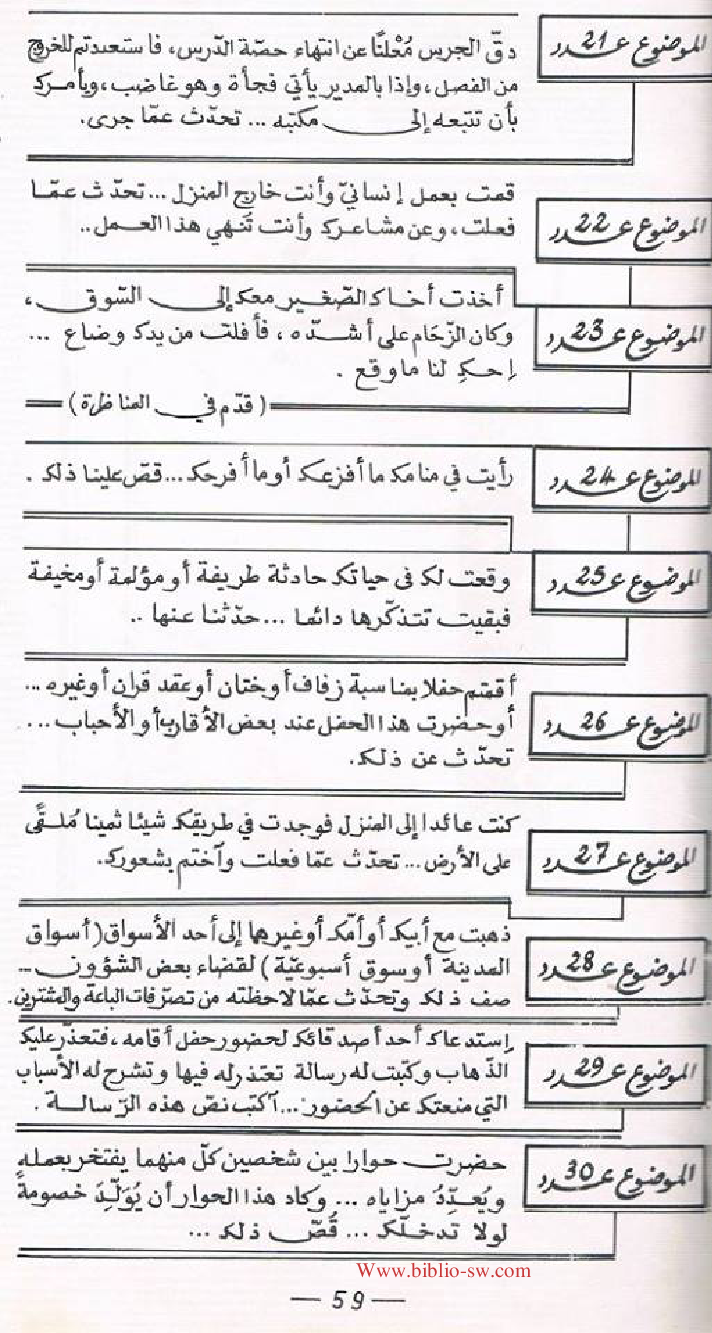 الموضوع عـــدد 21
دقّ الجرس مُعْلنًا عن انتهاء حصّة الدّرس، فاستعددتم للخروج
من الفصل، وإذا بالمدير يأتي فجأة وهو غاضب، ويأمرك
بأن تتبعه إلى مكتبه ... تحدّث عمّا جرى.
الموضوع عـــدد 22
قمت بعمل إنسانيّ وأنت خارج المنزل ... تحدّث عمّا
فعلت، وعن مشاعرك وأنت تُنهي هذا العمل ..
الموضوع عـــدد 23
أخذت أخاك الصّغير معك إلى السّوق،
وكان الزّحَام على أشدّه، فأفلت من يدك وضاع ...
اِحكِ لنا ما وقع .
(قدّم في المناظرة)
الموضوع عـــدد 24
رأيت في منامك ما أفزعك أو ما أفرحك ... قصّ علينا ذلك .
الموضوع عـــدد 25
وقعت لك في حياتك حادثة طريفة أو مؤلمة أو مخيفة
فبقيت تتذكّرها دائما ... حدّثنا عنها ..
الموضوع عـــدد 26
أقمتم حفلا بمناسبة زفاف أو ختان أو عقد قران أو غيره ...
أو حضرت هذا الحفل عند بعض الأقارب أو الأحباب ...
تحدّث عن ذلك.
الموضوع عـــدد 27
كنت عائدا إلى المنزل فوجدت في طريقك شيئا ثمينا مُلقًى
على الأرض ... تحدّث عمّا فعلت وآختم بشعورك.
الموضوع عـــدد 28
ذهبت مع أبيك أو أمّك أو غيرهما إلى أحد الأسواق (أسواق
المدينة أو سوق أسبوعيّة) لقضاء بعض الشؤون ...
صف ذلك وتحدّث عمّا لاحظته من تصرّفات الباعة والمشترين.
الموضوع عـــدد 29
اِستدعاك أحد أصدقائك لحضور حفل أقامه، فتعذّر عليك
الذّهاب وكتبت له رسالة تعتذر له فيها وتشرح له الأسباب
التي منعتك عن الحضور ... آكتب نصّ هذه الرّسالة .
الموضوع عـــدد 30
حضرت حوارا بين شخصين كلّ منهما يفتخر بعمله
ويُعدِّدُ مزاياه ... وكاد هذا الحوار أن يُوَلِّدَ خصومةً
لولا تدخّلك ... قُصّ ذلك ...
Www.biblio-sw.com
— 59 —